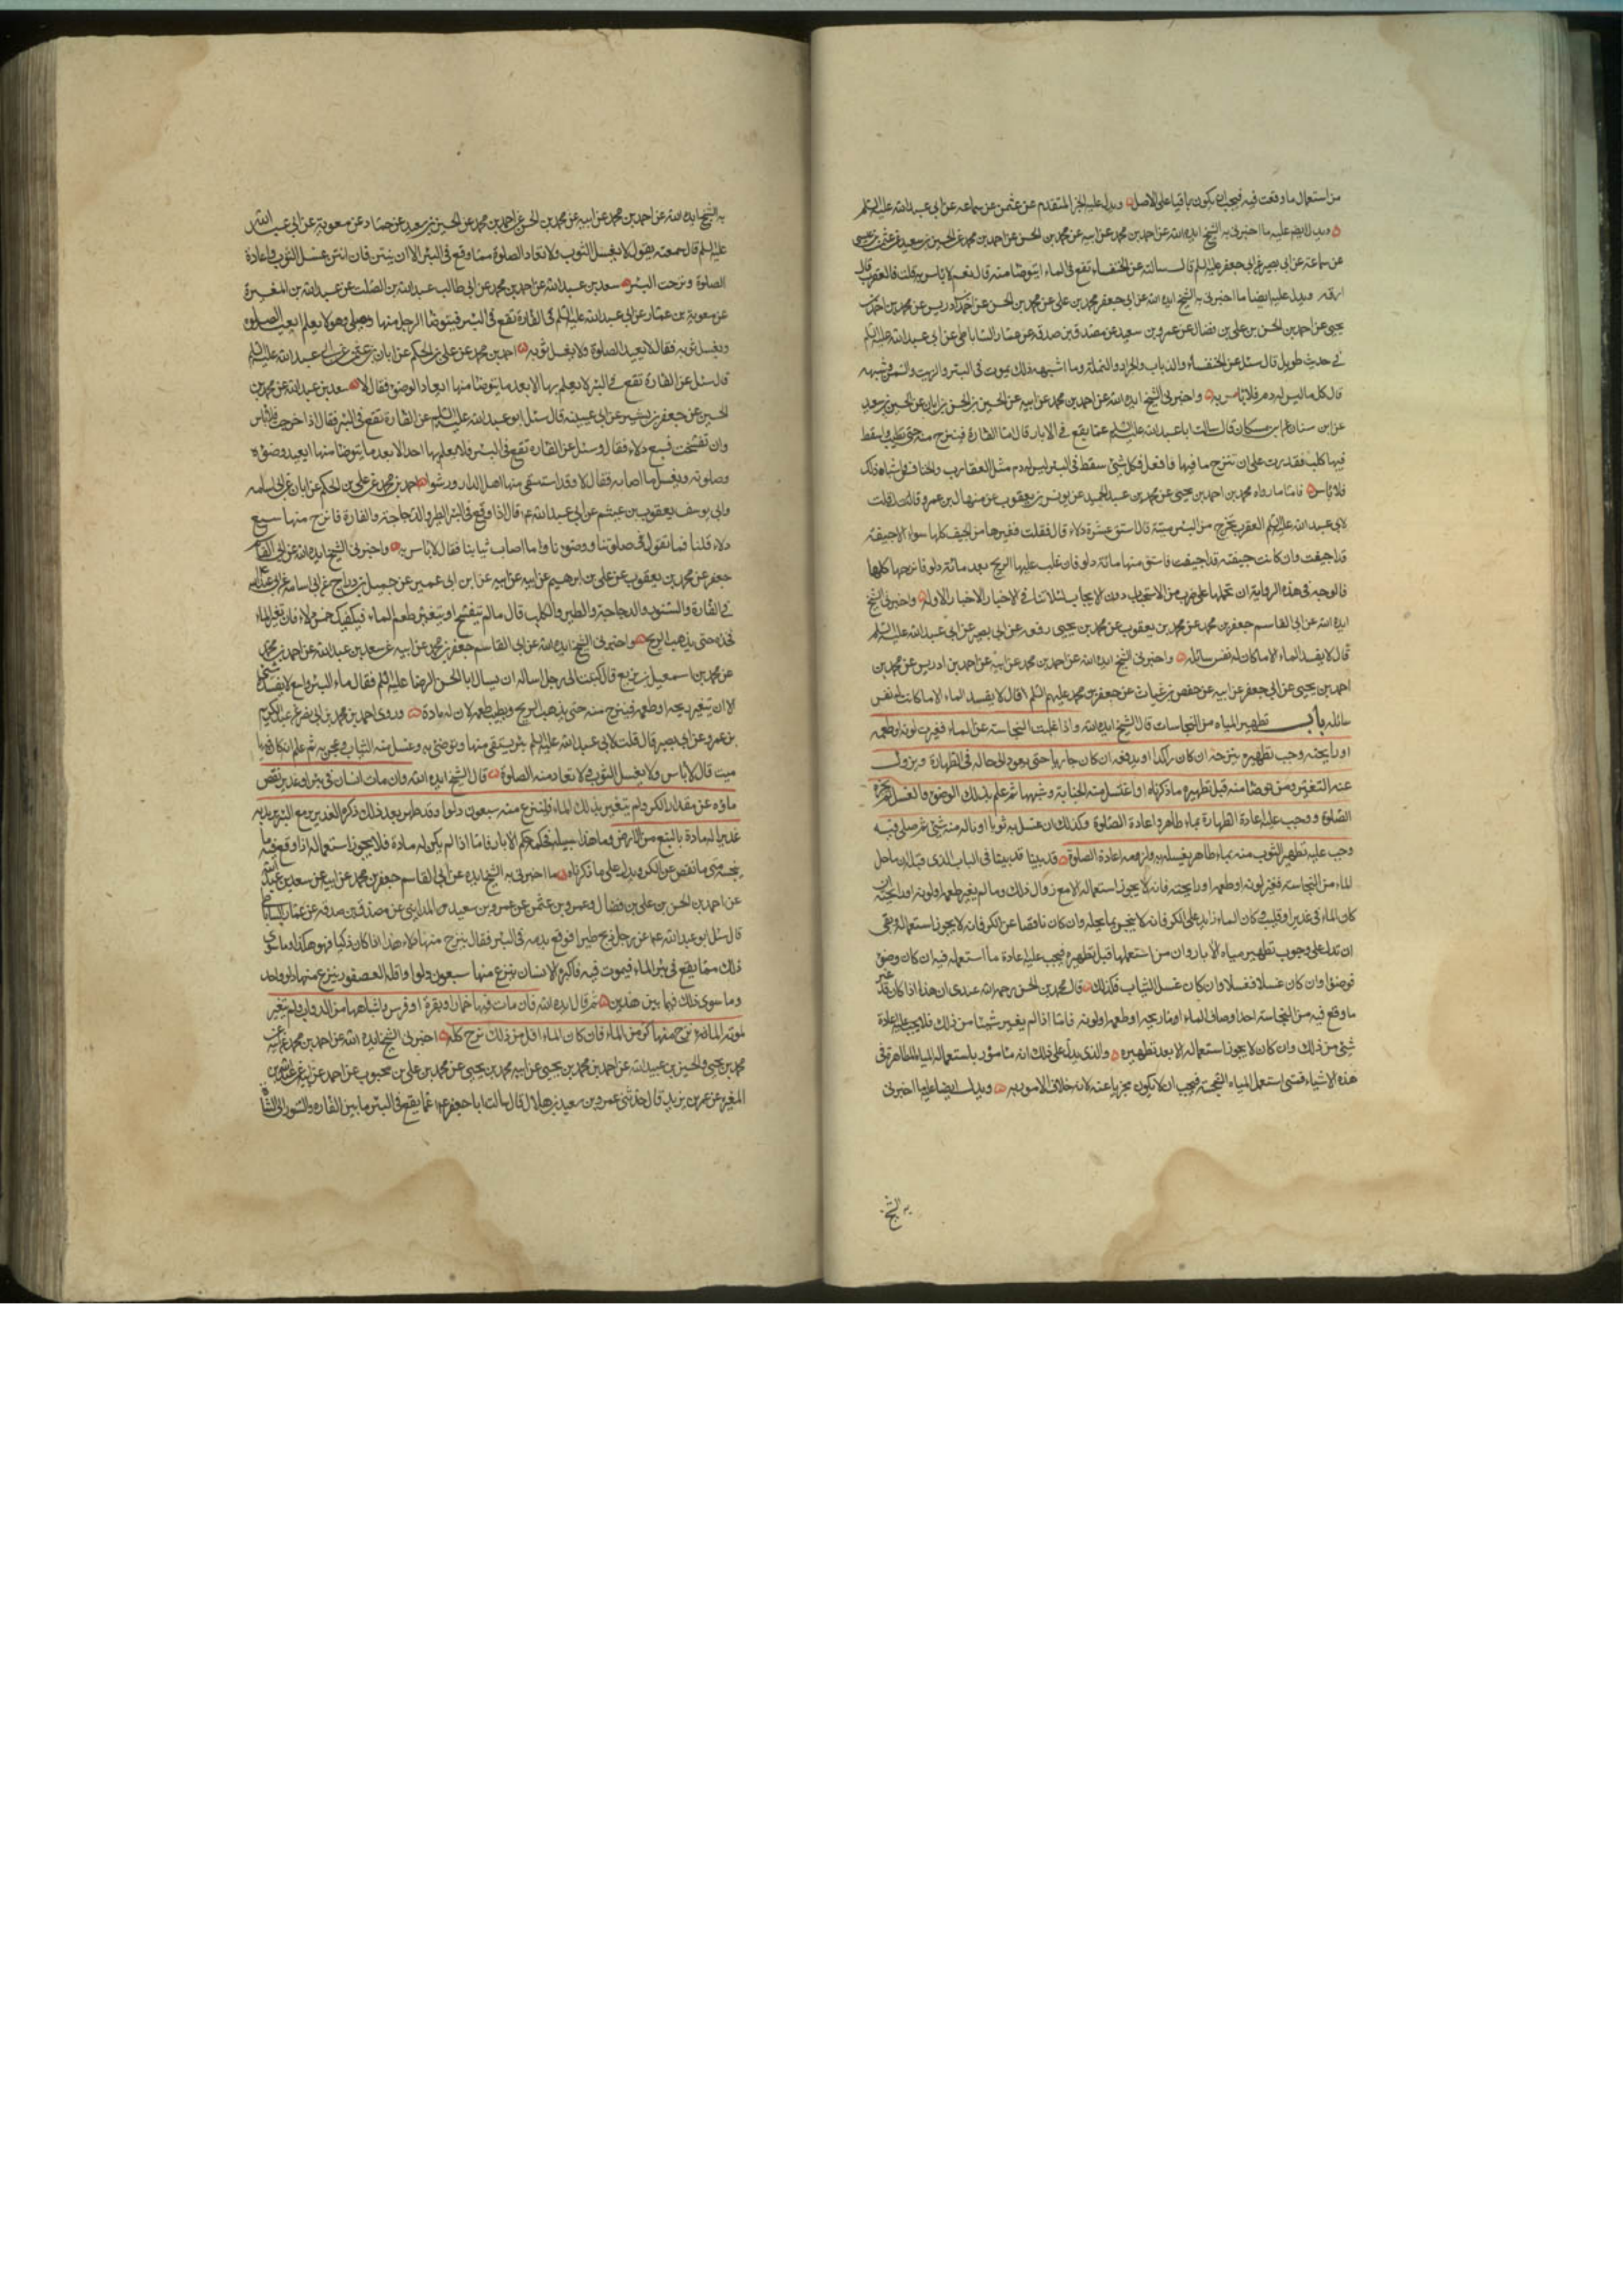 من استعمال ما وقعت فيه فيجب ان يكون باقيا على الاصل ويدل عليه الخبر المتقدم عن عثمن عن سماعه عن ابى عبدالله عليه السلم
ويدل ايضا عليه ما اخبرنى به الشيخ ايده الله عن احمد بن محمد عن ابيه عن محمد بن الحسن عن احمد بن محمد عن الحسين بن سعيد عن عثمن بن عيسى
عن سماعة عن ابى بصير عن ابى جعفر عليه السلم قال سالته عن الخنفساء تقع فى الماء ايتوضا منه قال نعم لا باس به قلت فالعقرب قال
ارقه ويدل عليه ايضا ما اخبرنى به الشيخ ايده الله عن ابى جعفر محمد بن على عن محمد بن الحسن عن احمد بن ادريس عن محمد بن احمد بن
يحيى عن احمد بن الحسن بن على بن فضال عن عمرو بن سعيد عن مصدق بن صدقه عن عمار الساباطى عن ابى عبدالله عليه السلم
فى حديث طويل قال سئل عن الخنفساء والذباب والجراد والنملة وما اشبه ذلك يموت فى البئر والزيت والسمن وشبهه
قال كل ما ليس له دم فلا باس به واخبرنى الشيخ ايده الله عن احمد بن محمد عن ابيه عن الحسين بن الحسن بن ابان عن الحسين بن سعيد
عن ابن سنان عن ابن مسكان قال سالت ابا عبدالله عليه السلم عما يقع فى الابار قال اما الفارة فينزح منه حتى تطيب وان سقط
فيها كلب فقدرت على ان تنزح ما فيها فافعل فكل شئ سقط فى البئر ليس له دم مثل العقارب والخنافس واشباه ذلك
فلا باس فاما ما رواه محمد بن احمد بن يحيى عن محمد بن عبد الحميد عن يونس بن يعقوب عن منهال بن عمرو قال قلت
لابى عبدالله عليه السلم العقرب تخرج من البئر ميتة قال استق عشرة دلاء قال فقلت فغيرها من الجيف كلها سواء الا جيفة
قد اجيفت وان كانت جيفة قد اجيفت فاستق منها مائة دلو فان غلب عليها الريح بعد مائة دلو فانزحها كلها
فالوجه فى هذه الرواية ان نحملها على ضرب من الاستحباب دون الايجاب لئلا تنافى الاخبار الاولة واخبرنى الشيخ
ايده الله عن ابى القاسم جعفر بن محمد عن محمد بن يعقوب عن محمد بن يحيى رفعه عن ابى بصير عن ابى عبدالله عليه السلم
قال لا يفسد الماء الا ما كان له نفس سائله واخبرنى الشيخ ايده الله عن احمد بن محمد عن ابيه عن احمد بن ادريس عن محمد بن
احمد بن يحيى عن ابى جعفر عن ابيه عن حفص بن غياث عن جعفر بن محمد عليهم السلم قال لا يفسد الماء الا ما كانت له نفس
سائله باب تطهير المياه من النجاسات قال الشيخ ايده الله واذا غلبت النجاسة على الماء فغيرت لونه او طعمه
او رايحته وجب تطهيره بنزحه ان كان راكدا او بدفعه ان كان جاريا حتى يعود الى حاله فى الطهارة ويزول
عنه التغير ومن توضا منه قبل تطهيره بما ذكرناه او اغتسل منه لجنابة وشبهها ثم علم بذلك الوضوء والغسل لم يجزه
الصلوة ووجب عليه اعادة الطهارة بماء طاهر واعادة الصلوة وكذلك ان غسل به ثوبا او ناله منه شئ ثم صلى فيه
وجب عليه تطهير الثوب منه بماء طاهر يغسله به ولزمه اعادة الصلوة قد بينا فى الباب الذى قبله ان ما حل
الماء من النجاسة فغير لونه او طعمه او رايحته فانه لا يجوز استعماله الا مع زوال ذلك وما لم يغير طعمه او لونه او رايحته
كان الماء فى غدير او قليب وكان الماء زايدا على الكر فانه لا ينجس بما يحله وان كان ناقصا عن الكر فانه لا يجوز استعماله وبقى
ان ندل على وجوب تطهير مياه الابار وان من استعملها قبل تطهيره فيجب عليه اعادة ما استعمله فيه ان كان وضوء
فوضوءا وان كان غسلا فغسلا وان كان غسل الثياب فكذلك قال محمد بن الحسن رحمه الله عندى ان هذا اذا كان قد غير
ما وقع فيه من النجاسة احد اوصاف الماء اما ريحه او طعمه او لونه فاما اذا لم يغير شيئا من ذلك فلا يجب عليه اعادة
شئ من ذلك وان كان لا يجوز استعماله الا بعد تطهيره والذى يدل على ذلك انه مامور باستعمال المياه الطاهرة فى
هذه الاشياء فمتى استعمل المياه النجسة فيجب ان لا يكون مجزيا عنه لانه خلاف المامور به ويدل ايضا عليه ما اخبرنى
به الشيخ
به الشيخ ايده الله عن احمد بن محمد عن ابيه عن محمد بن الحسن عن احمد بن محمد عن الحسين بن سعيد عن حماد عن معوية عن ابى عبدالله
عليه السلم قال سمعته يقول لا يغسل الثوب ولا تعاد الصلوة مما وقع فى البئر الا ان ينتن فان انتن غسل الثوب واعادة
الصلوة ونزحت البئر سعد بن عبدالله عن احمد بن محمد عن ابى طالب عبدالله بن الصلت عن عبدالله بن المغيرة
عن معوية بن عمار عن ابى عبدالله عليه السلم فى الفارة تقع فى البئر فيتوضا الرجل منها ويصلى وهو لا يعلم ايعيد الصلوة
ويغسل ثوبه فقال لا يعيد الصلوة ولا يغسل ثوبه احمد بن محمد عن على بن الحكم عن ابان بن عثمن عن ابى عبدالله عليه السلم
قال سئل عن الفارة تقع فى البئر لا يعلم بها الا بعد ما يتوضا منها ايعاد الوضوء فقال لا سعد بن عبدالله عن محمد بن
الحسين عن جعفر بن بشير عن ابى عيينه قال سئل ابو عبدالله عليه السلم عن الفارة تقع فى البئر فقال اذا خرجت فلا باس
وان تفسخت فسبع دلاء فقال وسئل عن الفارة تقع فى البئر فلا يعلم بها احد الا بعد ما يتوضا منها ايعيد وضوءه
وصلوته ويغسل ما اصابه فقال لا وقد استقى منها اهل الدار ورشوا احمد بن محمد عن على بن الحكم عن ابان عن ابى اسامه
وابى يوسف يعقوب بن عيثم عن ابى عبدالله ع قال اذا وقع فى البئر الطير والدجاجة والفارة فانزح منها سبع
دلاء قلنا فما تقول فى صلوتنا ووضوءنا وما اصاب ثيابنا فقال لا باس به واخبرنى الشيخ ايده الله عن ابى القاسم
جعفر عن محمد بن يعقوب عن على بن ابرهيم عن ابيه عن ابن ابى عمير عن جميل بن دراج عن ابى اسامه عن ابى عبدالله
فى الفارة والسنور والدجاجة والطير والكلب قال ما لم يتفسخ او يتغير طعم الماء فيكفيك خمس دلاء فان تغير الماء
فخذ حتى يذهب الريح واخبرنى الشيخ ايده الله عن ابى القاسم جعفر بن محمد عن ابيه عن سعد بن عبدالله عن احمد بن محمد
عن محمد بن اسمعيل بن بزيع قال كتبت الى رجل اساله ان يسال ابا الحسن الرضا عليه السلم فقال ماء البئر واسع لا يفسده شئ
الا ان يتغير ريحه او طعمه فينزح منه حتى يذهب الريح ويطيب طعمه لان له مادة وروى احمد بن محمد بن ابى نصر عن عبد الكريم
بن عمرو عن ابى بصير قال قلت لابى عبدالله عليه السلم بئر يستقى منها وتوضئ به وغسل منه الثياب وعجن به ثم علم انه كان فيها
ميت قال لا باس ولا يغسل الثوب ولا تعاد منه الصلوة قال الشيخ ايده الله وان مات انسان فى بئر او غدير ينقص
ماؤه عن مقدار الكر ولم يتغير بذلك الماء فلينزح منه سبعون دلوا وقد طهر بعد ذلك ذكره الغدير مع البئر يريد به
غديرا له مادة بالنبع من الارض وما هذا سبيله فحكمه حكم الابار فاما اذا لم يكن له مادة فلا يجوز استعماله اذا وقع فيه ما
ينجسه متى ما نقص عن الكر ويدل على ما ذكرناه ما اخبرنى به الشيخ ايده الله عن ابى القاسم جعفر بن محمد عن ابيه عن سعد بن عبدالله
عن احمد بن الحسن بن على بن فضال وعمرو بن عثمن عن عمرو بن سعيد المداينى عن مصدق بن صدقه عن عمار الساباطى
قال سئل ابو عبدالله ع عن رجل ذبح طيرا فوقع بدمه فى البئر فقال ينزح منها دلاء هذا اذا كان ذكيا فهو هكذا وما سوى
ذلك مما يقع فى بئر الماء فيموت فيه فاكبره الانسان ينزح منها سبعون دلوا واقله العصفور ينزح منها دلو واحد
وما سوى ذلك فيما بين هذين ثم قال ايده الله فان مات فيها حمار او بقرة او فرس واشباهها من الدواب ولم يتغير
بموته الماء نزح منها كر من الماء فان كان الماء اقل من ذلك نزح كله اخبرنى الشيخ ايده الله عن احمد بن محمد عن ابيه
محمد بن يحيى والحسين بن عبيدالله عن احمد بن محمد بن يحيى عن ابيه محمد بن يحيى عن محمد بن على بن محبوب عن احمد عن ابيه عن عبدالله بن
المغيره عن عمر بن يزيد قال حدثنى عمرو بن سعيد بن هلال قال سالت ابا جعفر ع عما يقع فى البئر ما بين الفاره والسنور الى الشاة